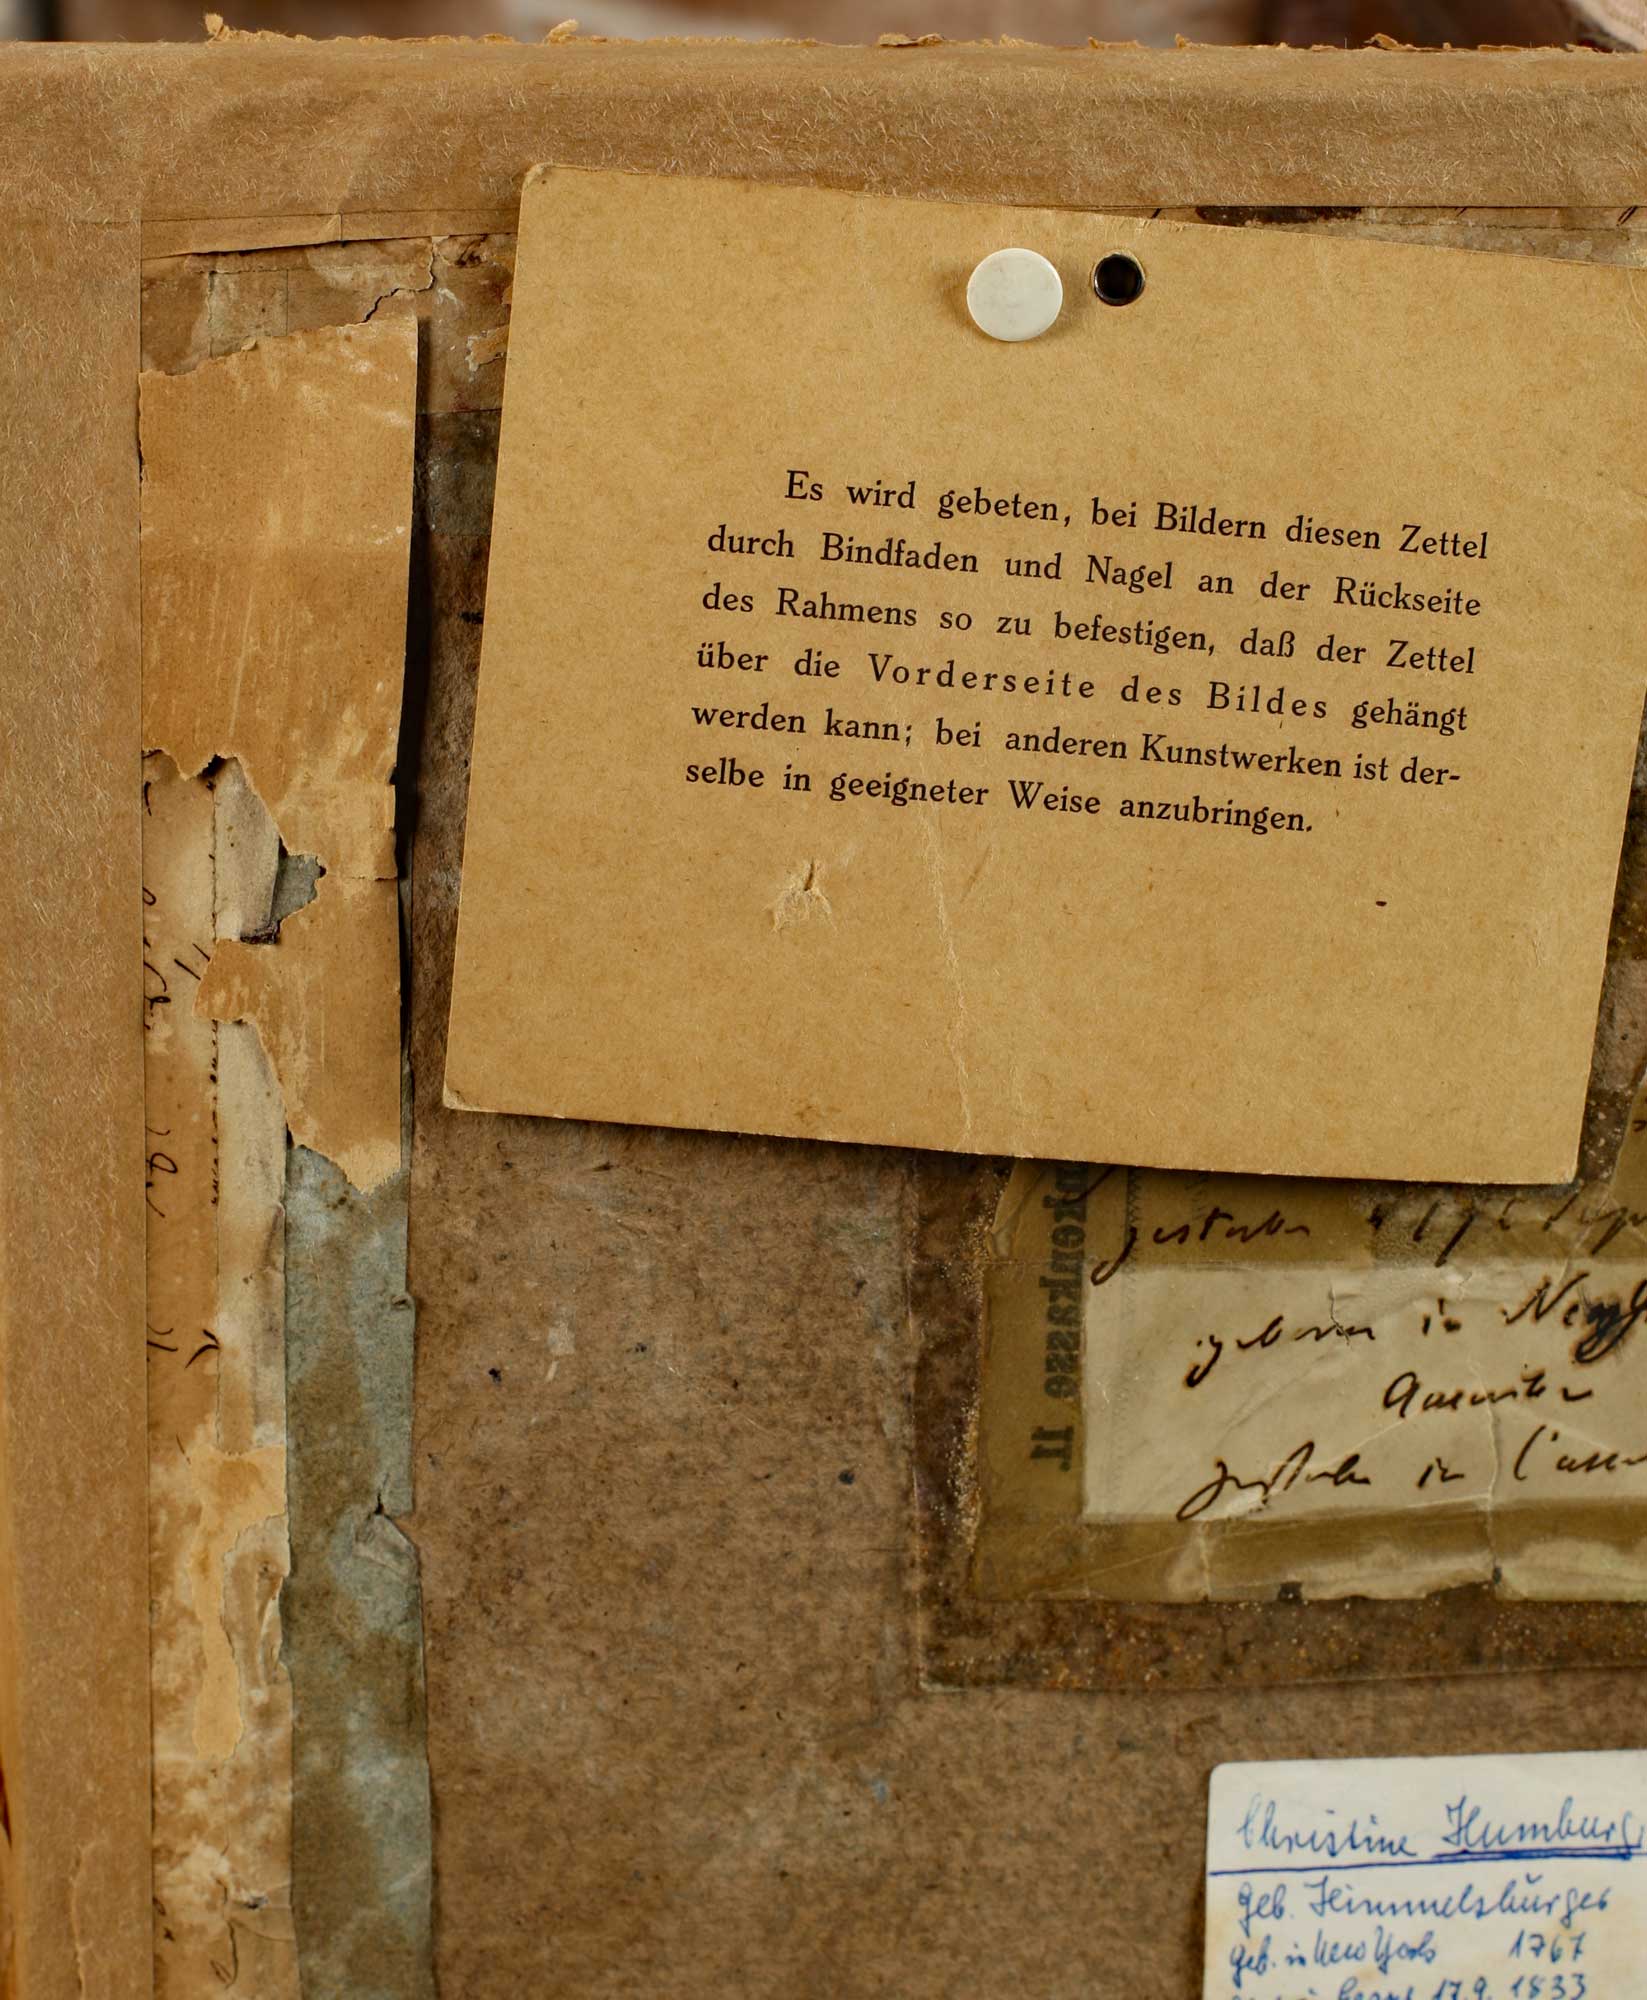 Es wird gebeten, bei Bildern diesen Zettel
durch Bindfaden und Nagel an der Rückseite
des Rahmens so zu befestigen, daß der Zettel
über die Vorderseite des Bildes gehängt
werden kann; bei anderen Kunstwerken ist der-
selbe in geeigneter Weise anzubringen.
gestorben
nkenkasse 11
geboren in
gestorben in
Christine Humburg
geb. Himmelsburger
geb. in New York 1767
17.9.1833